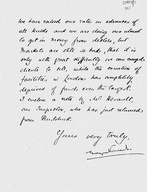 We have raised our rate on advances of
all kinds and we are doing our utmost
to get in money from debtors, but
markets are still so bad, that it is
only with great difficulty we can compel
clients to sell, while the creation of
facilities in London has completely
deprived of funds over the
I enclose a note by Mr
our Inspector, who has just returned
from
Yours very truly,